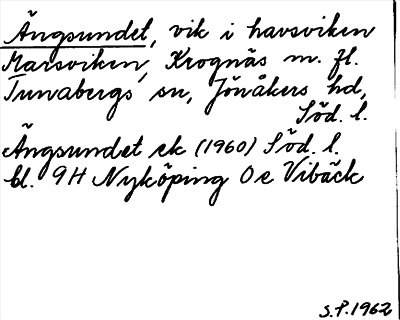 Ängsundet, vik i havsviken
Marsviken, Krognäs m. fl.
Tunabergs sn, Jönåkers hd,
Söd. l.
Ängsundet ek (1960) Söd. l.
bl. 9H Nyköping Oe Vibäck
S.P. 1962